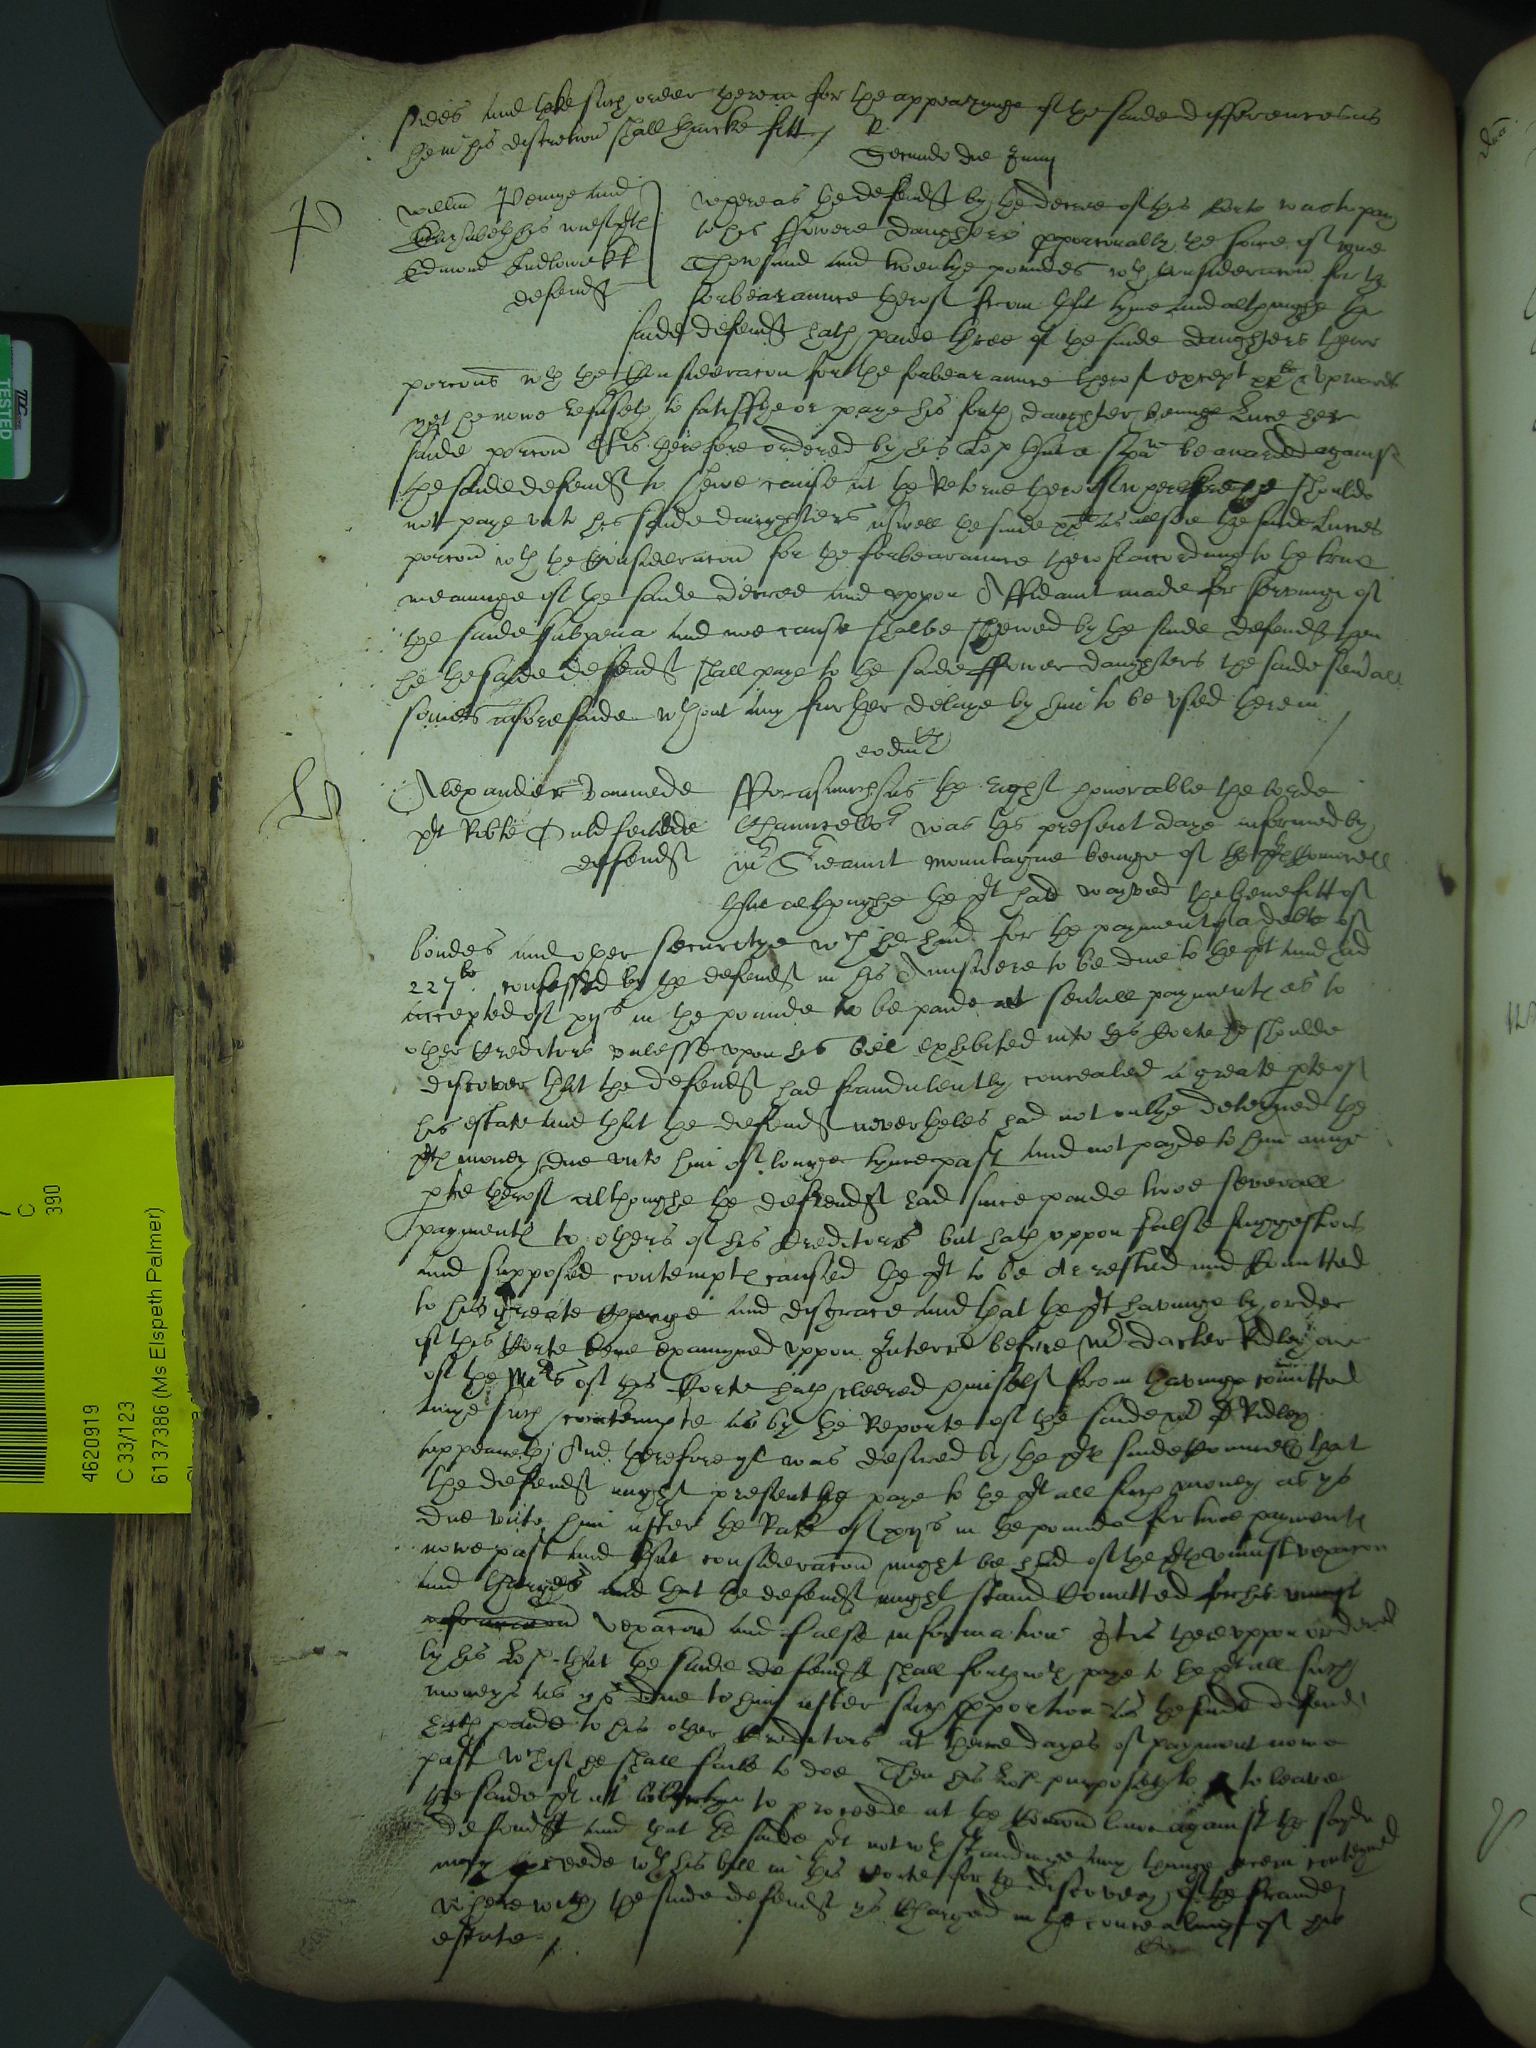 sides and take such order therein for the appearinge of the saide differences as
he in his discretion shall thincke fitt / R
Secundo die Junij
P
Willm and
Elizabeth his wief plts
Edmond Ludlowe kt
defendt
Whereas the defendt by the decree of this Corte was to pay
to his ffowere daughters proporcionally the some of one
Thowsand and twentye poundes wth consideracon for the
forbearaunce therof from that tyme and althoughe the
saide defendt hath paide three of the saide daughters there
porcons wth the Consideracon for the forbearaunce therof except xxli & upwards
yet he nowe refuseth to satisffye or paye his forth daughter beinge Luce her
saide porcon It is therefore ordered by his Lop that a spa be awarded against
the saide defendt to shewe cause at the Retorne therof wherefore he should
not paye unto his saide daughters aswell the saide xxli as allsoe the saide Luces
porcon wth the Consideracon for the forbearaunce therof accordinge to the true
meaninge of the saide decree and uppon Affidavit made for servinge of
the saide subpena and noe cause shalbe shewed by the saide defendt then
he the saide defendt shall paye to the saide ffower daughters the saide sevall
somes aforesaide wthout any further delaye by him to be used herein
eodm
Alexander
plt Robte
deffendt
Fforasmuch as the right honorable the lorde
Chauncellor was this present daye informed by
mr Sreaunt Mountague beinge of the plts Councell
that althoughe the plt had wayved the benefitt of
bondes and other securitye wch he had for the payment of a debte of
227li confessed by the defendt in his Aunswere to be due to the plt and had
accepted of xijs in the pounde to be paide at sevall paymentes as to
other Creditors unlesse upon his bill exhibited into this Corte he shoulde
discover that the defendt had fraudulently concealed a greate pte of
his estate and that the defendt neverheles had not onlye deteyned the
plts money due unto him of longe tyme past and not payde to him anye
pte therof althoughe the defendt had since paide twoe severall
paymentes to others of his Creditors but hath uppon false suggestions
and supposed contempts caused the plt to be Arrested and Comitted
to his greate Charge and disgrace and that the plt havinge by order
of this Corte bine examyned uppon Interrs before Mr Doctor Ridley one
of the Mrs of this Corte hath cleered himself from havinge comitted
anye such contempte as by the Reporte of the saide Mr D Ridley
appeareth And therefore yt was desired by the plts saide Councell that
the defendt might presentlye paye to the plt all such money as ys
due unto him after the Rate of xijs in the pounde for twoe paymentes
nowe past and that consideracon might be had of the plts uniust vexacon
and charges and that the defendt might stand Comitted for his uniust
vexacon and false informacon It is thereuppon ordered
by his Lop that the saide defendt shall forthwth paye to the plt all such
moneys as ys due to him after such pportion as the saide defendt
hath paide to his other Creditors at there dayes of payment nowe
past wch if he shall faile to doe Then his Lop purposeth to leave
the saide plt at libertye to proceede at the Comon lawe against the sayde
defendt and that the saide plt not wth standinge any thinge herein conteyned
may proceede wth his bill in this Corte for the discovery of the fraude
wherewith the saide defendt ys Charged in the concealinge of his
estate /
TESTED
C
390
4620919
C 33/123
6137386 (Ms Elspeth Palmer)